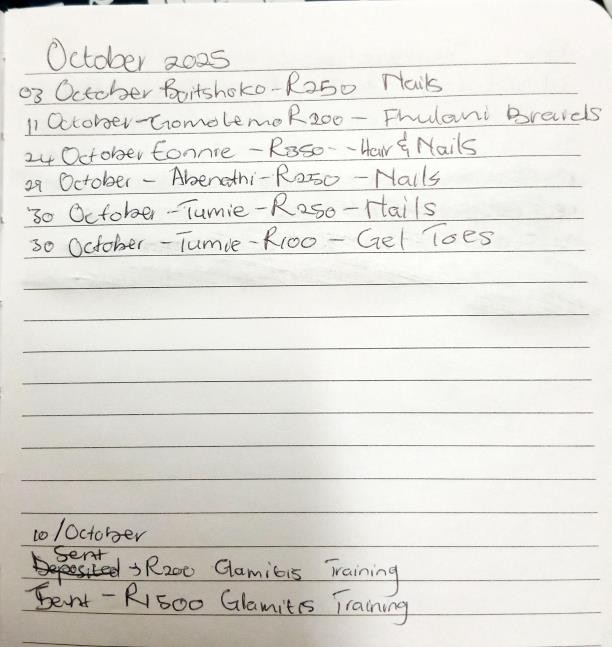 October 2025
03 October Boitshoko - R250 Nails
11 October - Gomolemo R200 - Fhulani Braids
24 October Eonnie - R350 - Hair & Nails
29 October - Abenathi - R250 - Nails
30 October - Tumie - R250 - Nails
30 October - Tumie - R100 - Gel Toes
10/October
Sent
Deposited → R200 Glamitis Training
Sent - R1500 Glamitis Training